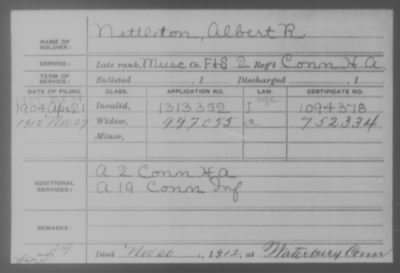 NAME OF SOLDIER: Nettleton, Albert R
SERVICE: Late rank, Musc Co. F&S 2 Reg't Conn H A
TERM OF SERVICE: Enlisted , 1 Discharged , 1
DATE OF FILING. CLASS. APPLICATION NO. LAW. CERTIFICATE NO.
1904 Apr 21 Invalid, 1313352 1094378
1912 Nov 27 Widow, 997055 752334
Minor,
ADDITIONAL SERVICES: A 2 Conn H A
A 19 Conn Inf
REMARKS:
Died Nov 20, 1912, at Waterbury Conn